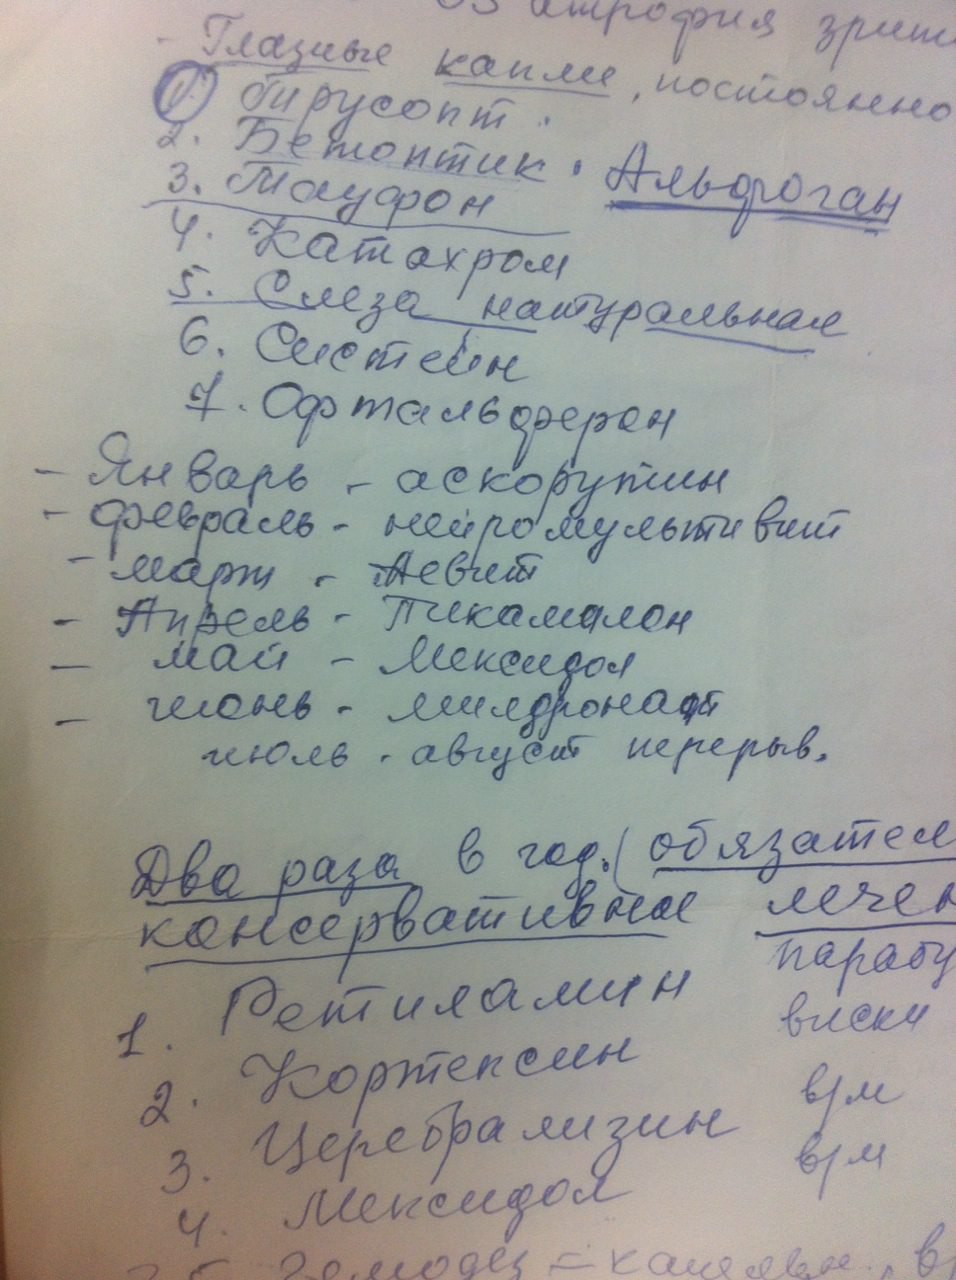 атрофия зрит
- Глазные капли, постоянно
1. Вирусопт.
2. Бетоптик. Альфаган
3. Тауфон
4. Катахром
5. Слеза натуральная
6. Систейн
7. Офтальмоферон
- Январь - аскорутин
- февраль - нейромультивит
- март - Аевит
- Апрель - Пикамилон
- май - Мексидол
- июнь - милдронат
июль - август перерыв.
Два раза в год. (обязател
консервативное лечен
1. Ретиламин парабу
2. Кортексин виски
3. Церебрализин в/м
4. Мексидол в/м